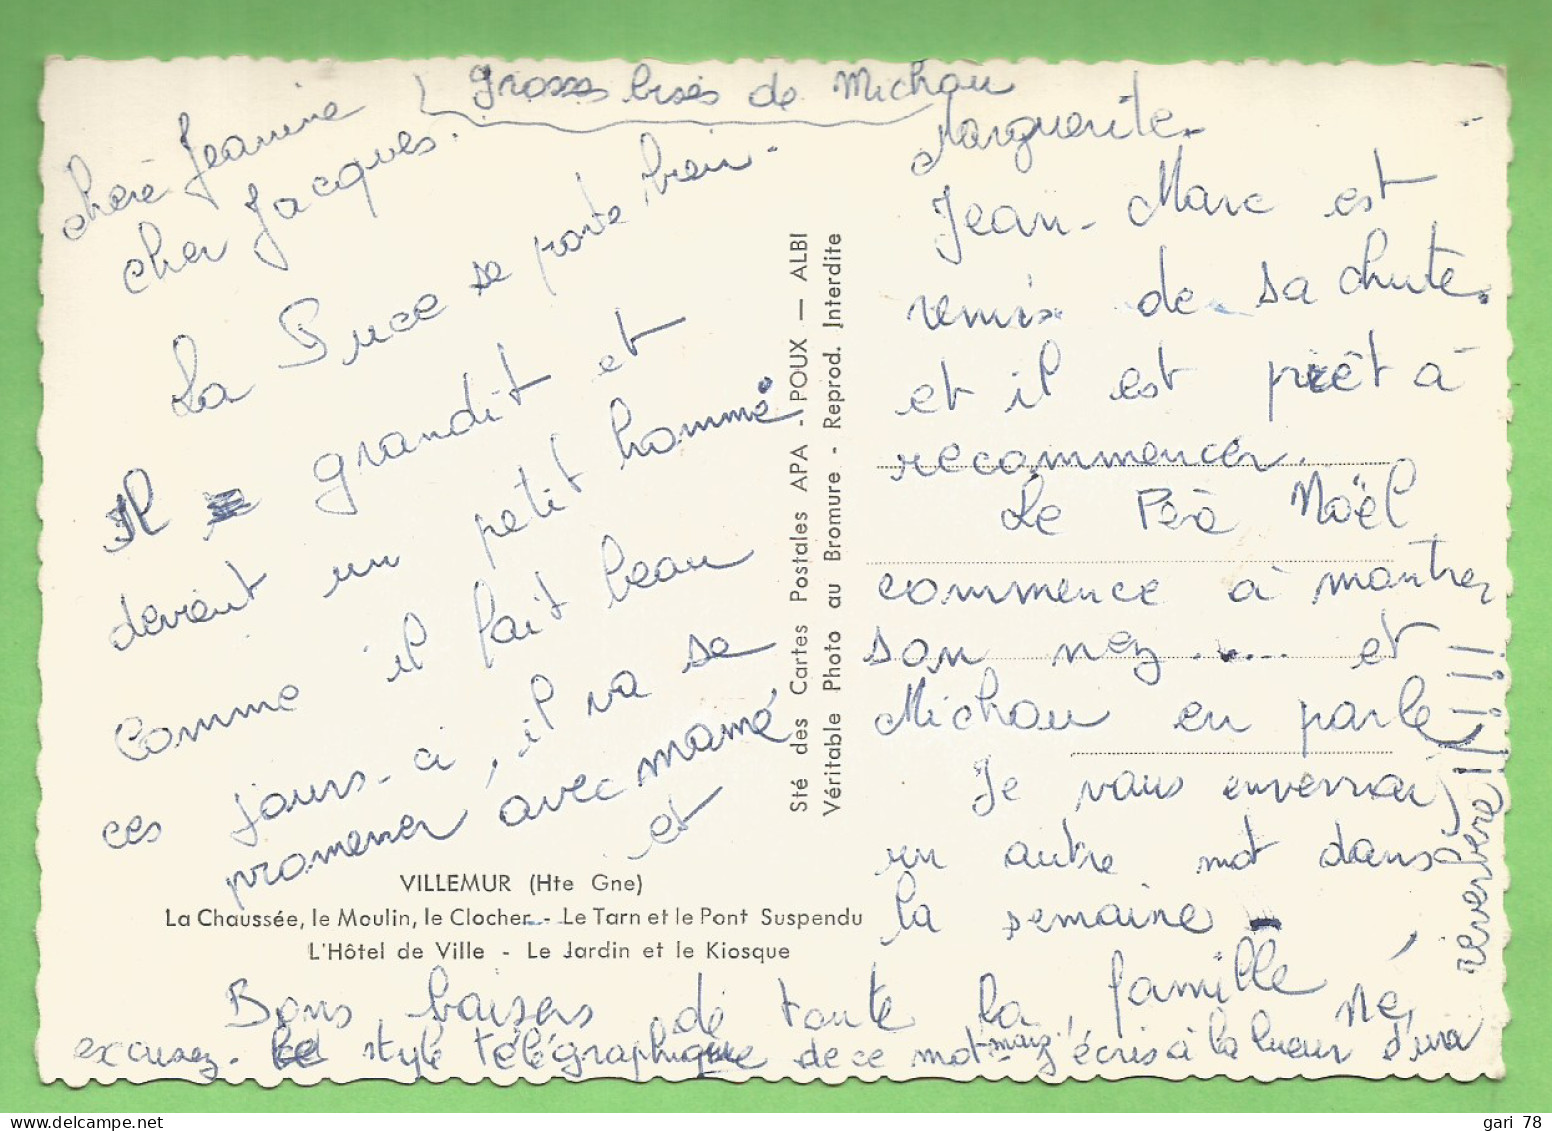 Grosses bises de Michou
Chère Jeanine
cher Jacques.
La Puce se porte bien.
Il grandit et
devient un petit homme
Comme il fait beau
ces jours-ci, il va se
promener avec mamé
et
Marguerite.
Jean-Marc est
remis de sa chute.
et il est prêt à
recommencer.
Le Père Noël
commence à montrer
son nez..... et
Michou en parle!
Je vous enverrai
un autre mot dans
la semaine -
Bons baisers de toute la famille
excusez le style télégraphique de ce mot mais j'écris à la lueur d'un
réverbère!!!!!
VILLEMUR (Hte Gne)
La Chaussée, le Moulin, le Clocher - Le Tarn et le Pont Suspendu
L'Hôtel de Ville - Le Jardin et le Kiosque
Sté des Cartes Postales APA - POUX — ALBI
Véritable Photo au Bromure - Reprod. Interdite
gari 78